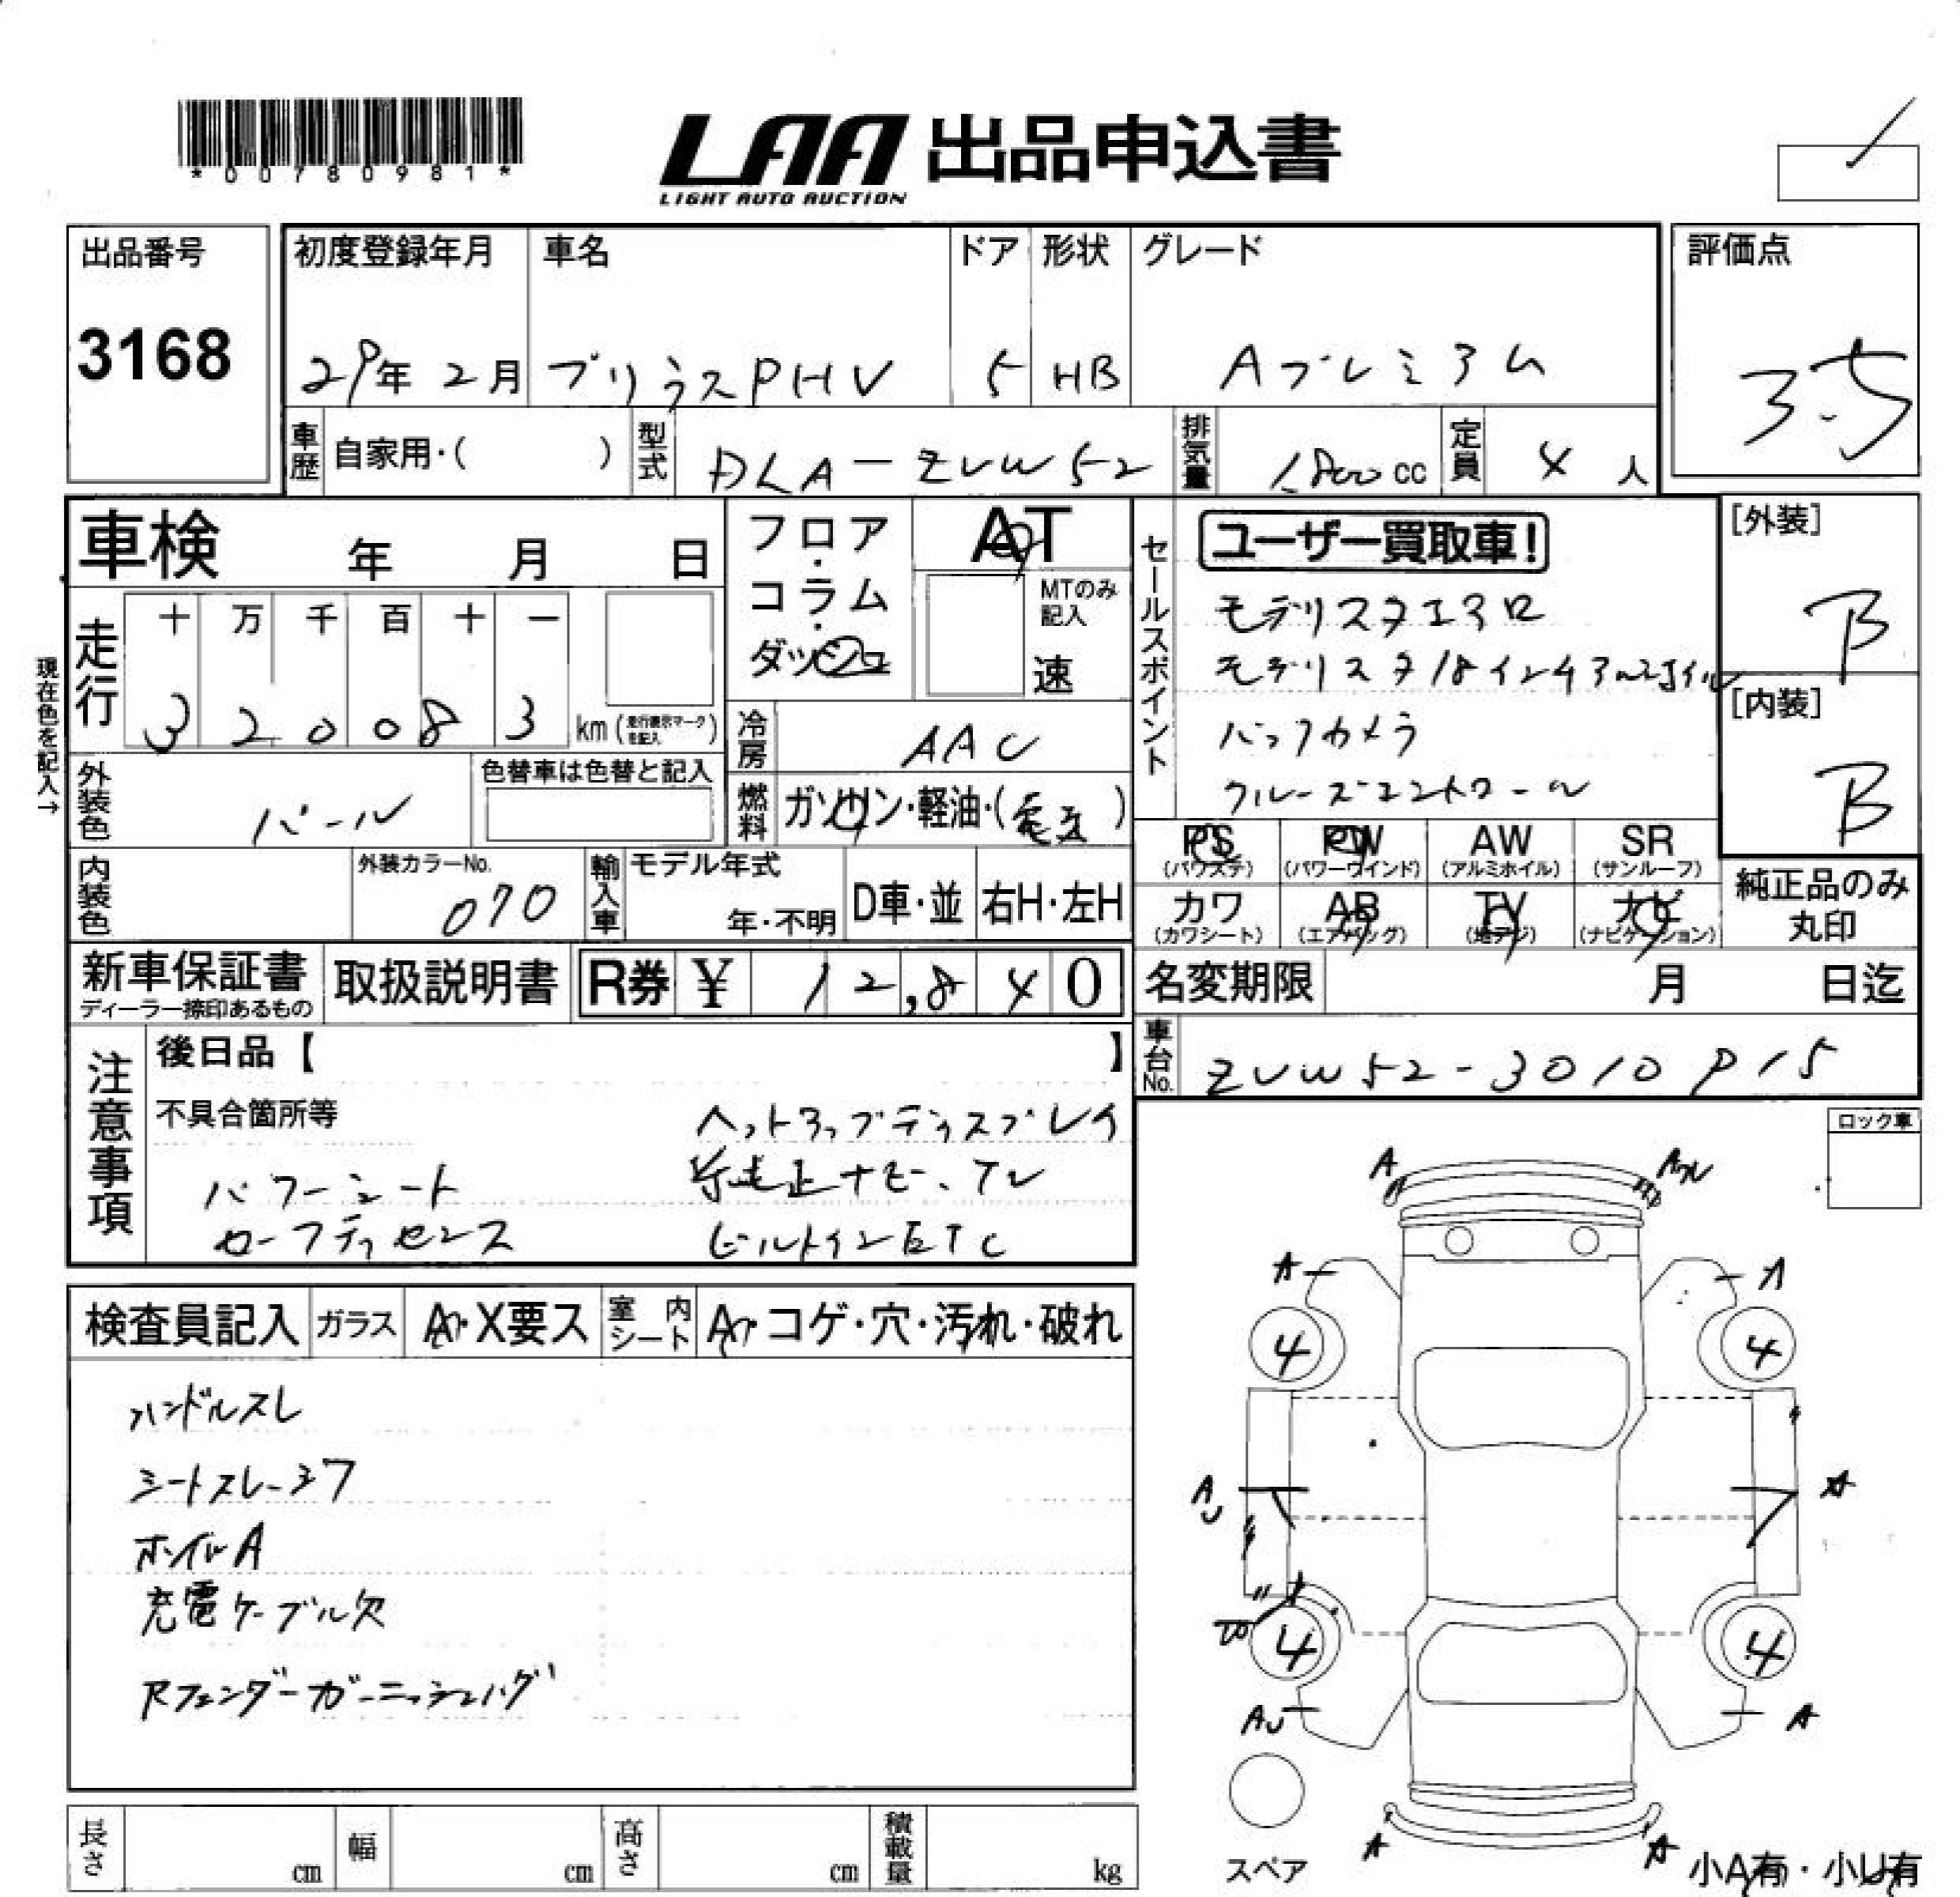 *00780981*
LAA 出品申込書
LIGHT AUTO AUCTION
出品番号
3168
初度登録年月
29年 2月
車名
プリウスPHV
ドア
5
形状
HB
グレード
Aプレミアム
評価点
3.5
車歴 自家用・( )
型式 DLA-ZVW52
排気量 1,800cc
定員 4人
車検 年 月 日
現在色を記入→
走行 十 万 千 百 十 一
320083 km (走行表示マークを記入)
フロア・コラム・ダッシュ
AT
MTのみ記入
速
冷房 AAC
燃料 ガソリン・軽油・(電気)
外装色 パール
色替車は色替と記入
内装色
外装カラーNo. 070
輸入車 モデル年式 年・不明 D車・並 右H・左H
新車保証書
ディーラー捺印あるもの
取扱説明書
R券 ¥ 12,840
セールスポイント
ユーザー買取車!
モデリスタエアロ
モデリスタ18インチアルミホイル
バックカメラ
クルーズコントロール
PS (パワステ) PW (パワーウインド) AW (アルミホイル) SR (サンルーフ)
カワ (カワシート) AB (エアバッグ) TV (地デジ) ナビ (ナビゲーション)
[外装]
B
[内装]
B
純正品のみ丸印
名変期限 月 日迄
車台No. ZVW52-3010
注意事項
後日品【 】
不具合箇所等
ヘッドアップディスプレイ
パワーシート 純正ナビ、TV
セーフティセンス ビルトインETC
検査員記入 ガラス A・X要ス 室内シート A・コゲ・穴・汚れ・破れ
ハンドルスレ
シートスレ・シワ
ホイルA
充電ケーブル欠
Rフェンダーガーニッシュハグ
長さ cm 幅 cm 高さ cm 積載量 kg
ロック車
A
A A
4 4
A
U
4 4
AU A
スペア
A A
小A有・小U有